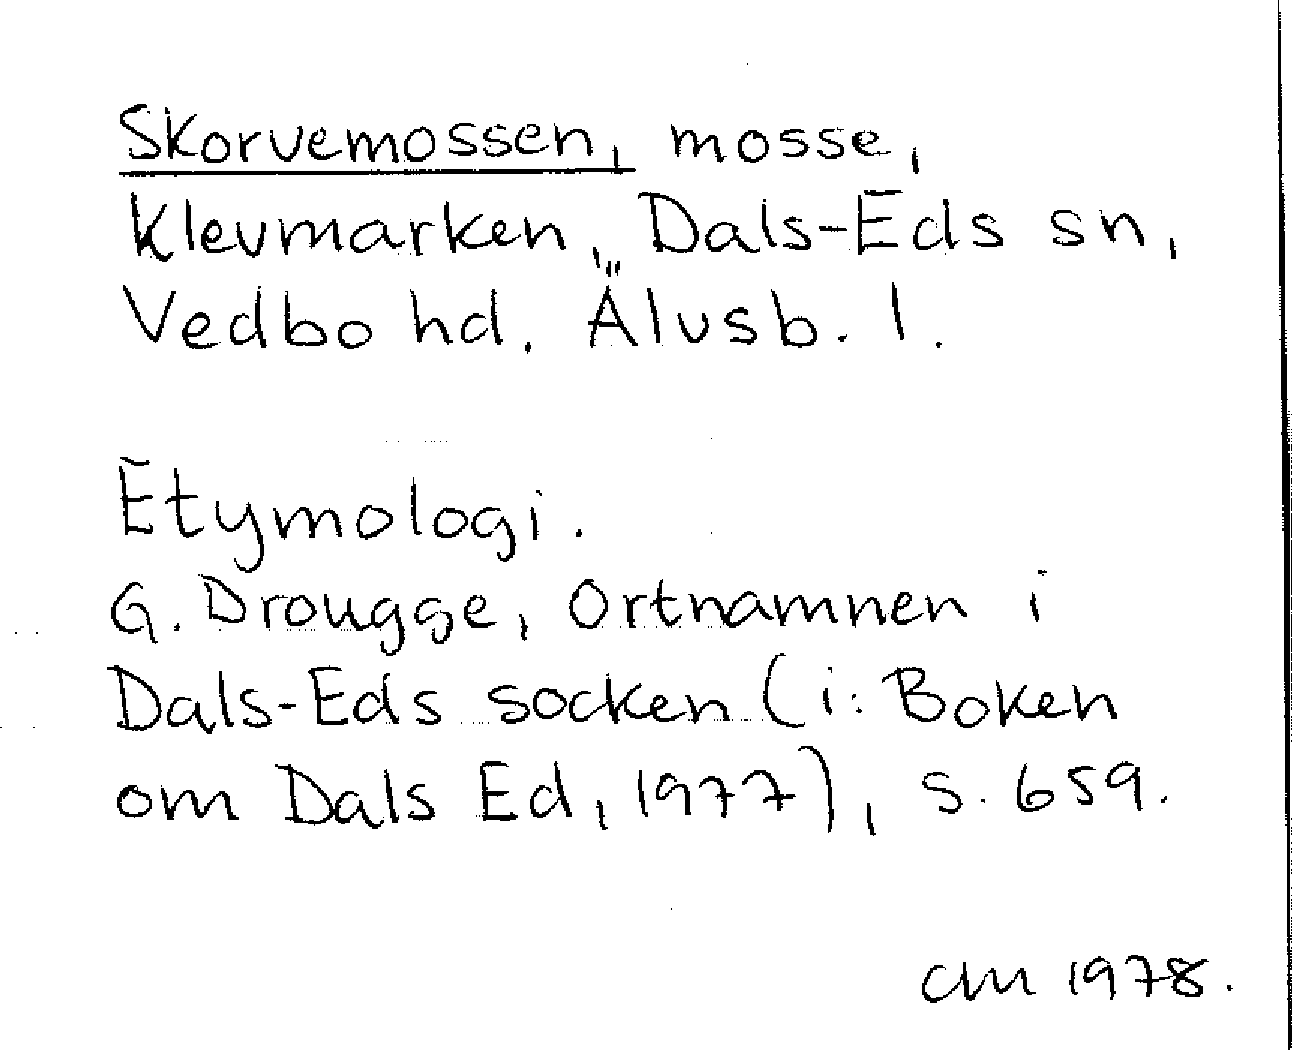 Skorvemossen, mosse,
Klevmarken, Dals-Eds sn,
Vedbo hd. Älvsb. l.
Etymologi.
G. Drougge, Ortnamnen i
Dals-Eds socken (i: Boken
om Dals Ed, 1977), s. 659.
CM 1978.